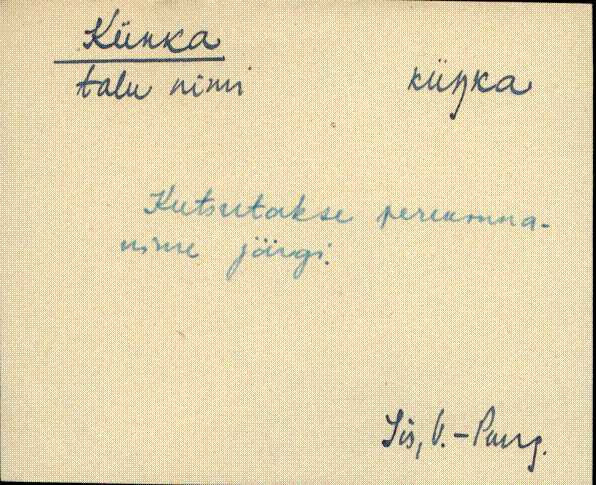 Künka
talu nimi küŋka
Kutsutakse perekonna-
nime järgi.
Iis, V.-Pung.